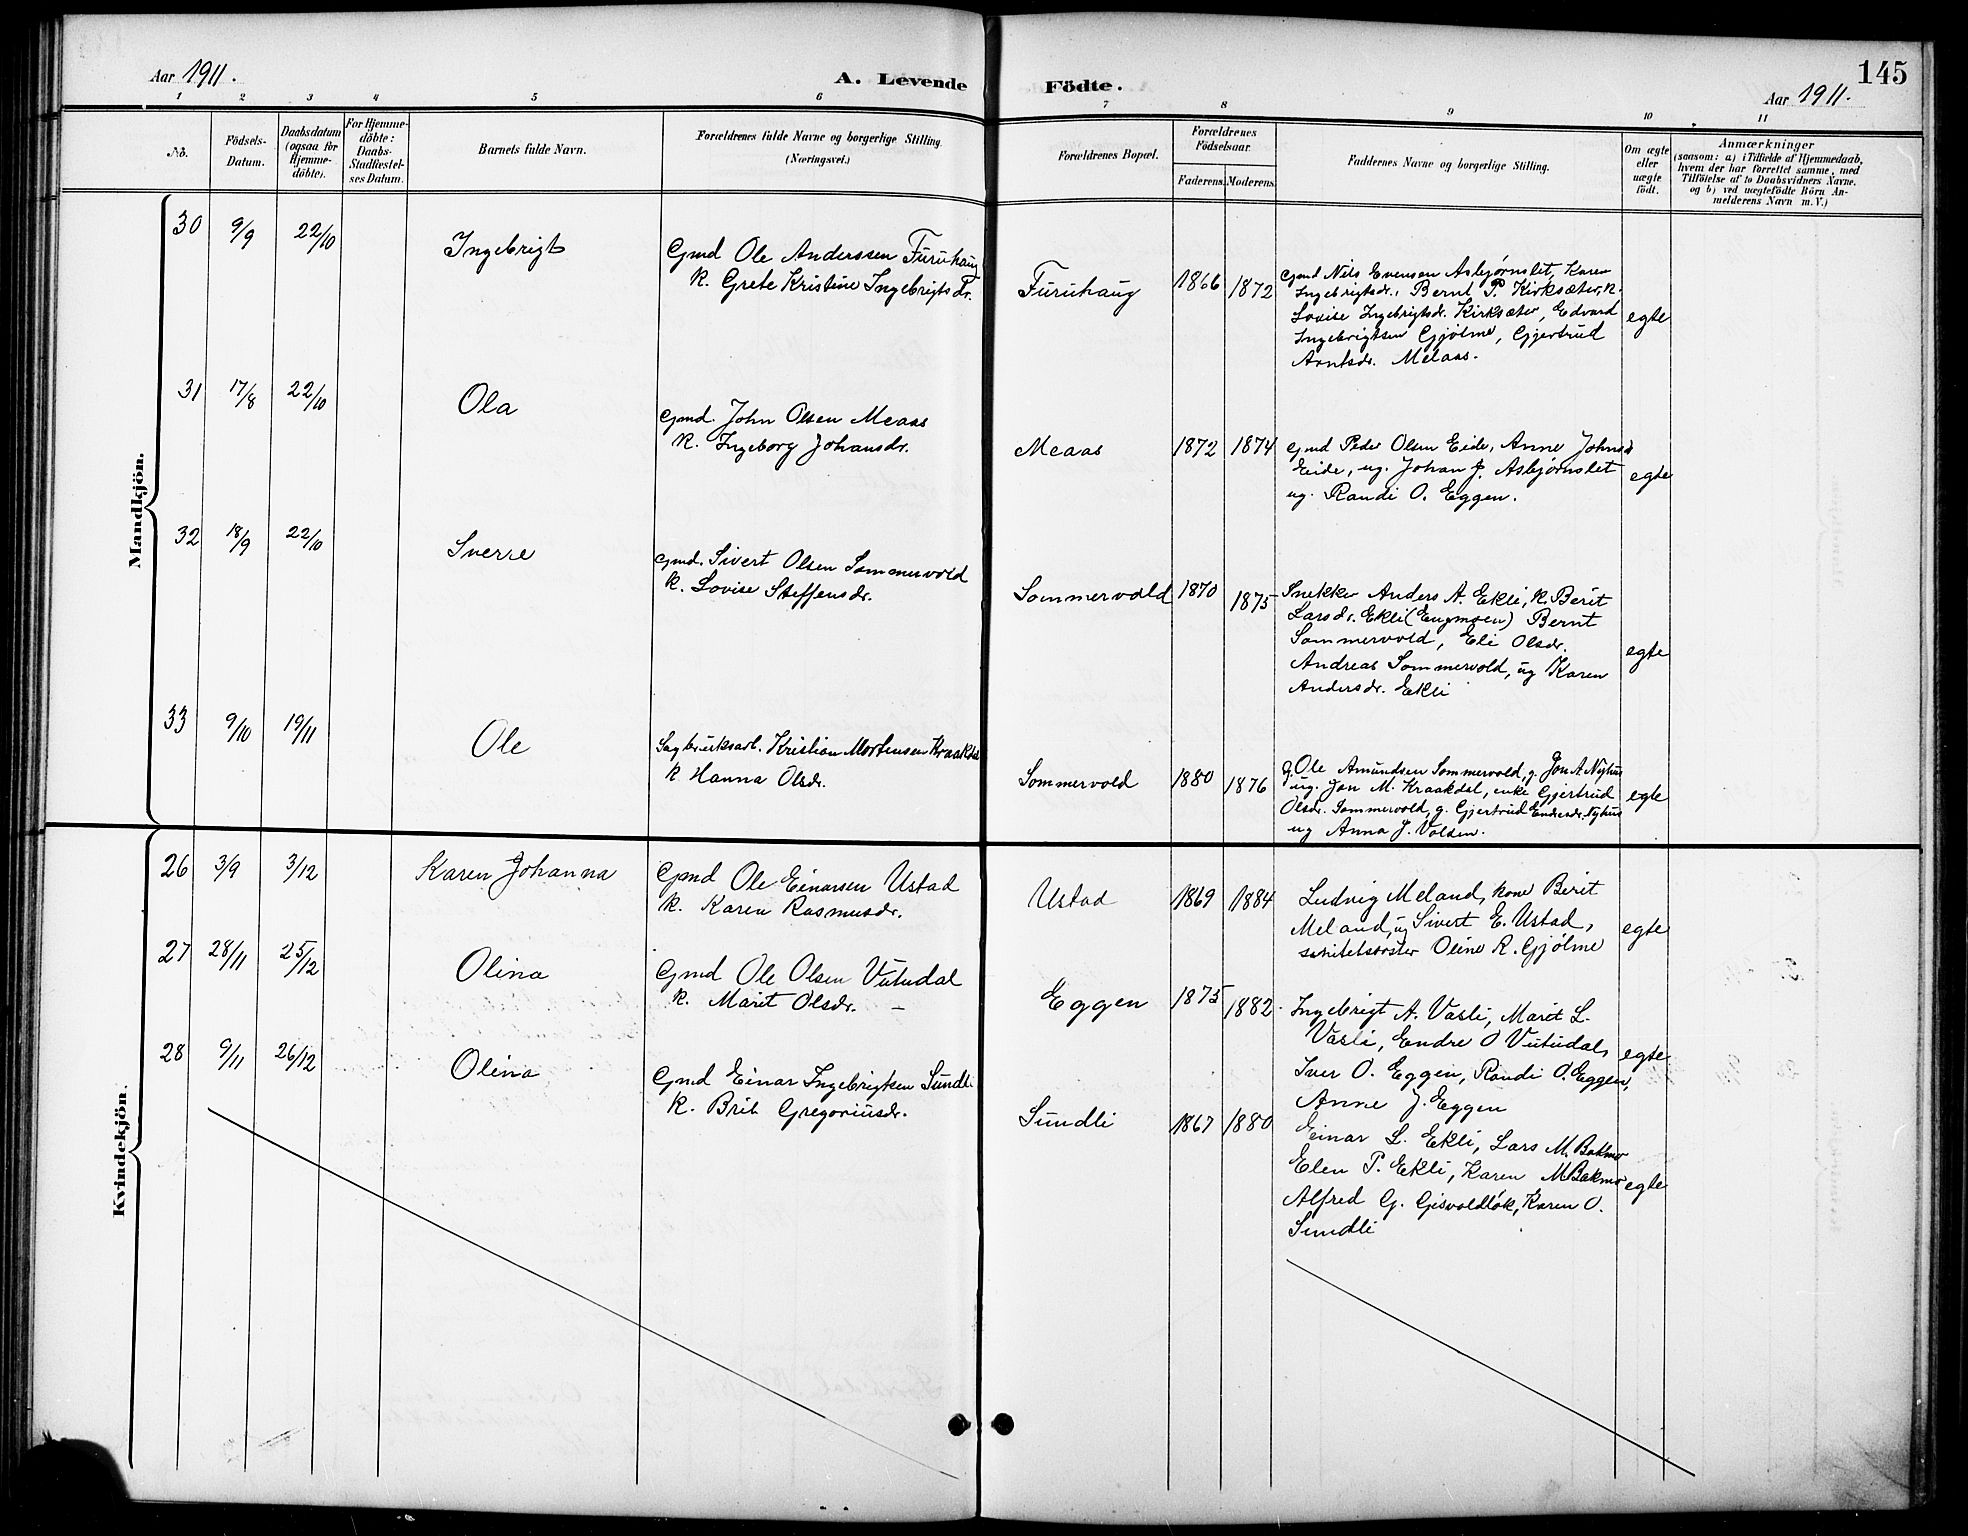 Aar 1911.
A. Levende Födte.
Aar 1911.
145
1 2 3 4 5 6 7 8 9 10 11
No.
Födsels-
Datum.
Daabsdatum
(ogsaa for
Hjemme-
döbte).
For Hjemme-
döbte:
Daabs-
Stadfæstel-
ses Datum.
Barnets fulde Navn.
Forældrenes fulde Navne og borgerlige Stilling.
(Næringsvei.)
Forældrenes Bopæl.
Forældrenes
Födselsaar.
Faderens. Moderens.
Faddernes Navne og borgerlige Stilling.
Om ægte
eller
uægte
födt.
Anmærkninger
(saasom: a) i Tilfælde af Hjemmedaab,
hvem der har forrettet samme, med
Tilföielse af to Daabsvidners Navne.
og b) ved uægtefödte Börn An-
melderens Navn m. V.)
Mandkjön.
30 9/9 22/10 Ingebrigt
Gmd Ole Anderssen Furuhaug
K. Grete Kristine Ingebrigtsdr.
Furuhaug 1866 1872
Gmd Nils Evensen Asbjørnslet, Karen
Ingebrigtsdr., Bernt P. Kirksæter, K.
Lovise Ingebrigtsdr. Kirksæter, Edvard
Ingebrigtsen Gjølme, Gjertrud
Arntsdr. Melaas.
egte
31 17/8 22/10 Ola
Gmd. John Olsen Meaas
K. Ingeborg Johansdr.
Meaas 1872 1874
Gmd Peder Olsen Eide, Anne Johnsd
Eide, ug. Johan J. Asbjørnslet
ug. Randi O. Eggen.
egte
32 18/9 22/10 Sverre
Gmd. Sivert Olsen Sommervold
K. Lovise Steffensdr.
Sommervold 1870 1875
Snekker Anders A. Ekli, K. Berit
Larsdr. Ekli (Engmoen) Bernt
Sommervold, Eli Olsdr.
Andreas Sommervold, ug Karen
Andersdr. Ekli
egte
33 9/10 19/11 Ole
Sagbruksarb. Kristian Mortensen Kraakdal
K Hanna Olsdr.
Sommervold 1880 1876
g. Ole Amundsen Sommervold, g. Jon A. Nyhus
ug. Jon M. Kraakdal, enke Gjertrud
Olsdr. Sommervold, g. Gjertrud Endresdr. Nyhus
ug Anna J. Volden.
egte
Kvindekjön.
26 3/9 3/12 Karen Johanna
Gmd Ole Einarsen Ustad
K. Karen Rasmusdr.
Ustad 1869 1884
Ludvig Meland, kone Berit
Meland, ug Sivert E. Ustad,
Oline R. Gjølme
egte
27 28/11 25/12 Olina
Gmd Ole Olsen Vutudal
K. Marit Olsdr. –
Eggen 1875 1882
Ingebrigt A. Vasli, Marit L.
Vasli, Endre O Vutudal,
Iver O. Eggen, Randi O. Eggen,
Anne J. Eggen
egte
28 9/11 26/12 Olina
Gmd Einar Ingebrigtsen Sundli
K. Brit Gregoriusdr.
Sundli 1867 1880
Einar L. Ekli, Lars M. Bakmo
Elen P. Ekli, Karen M Bakmo
Alfred G. Gisvoldløk, Karen O.
Sundli
egte